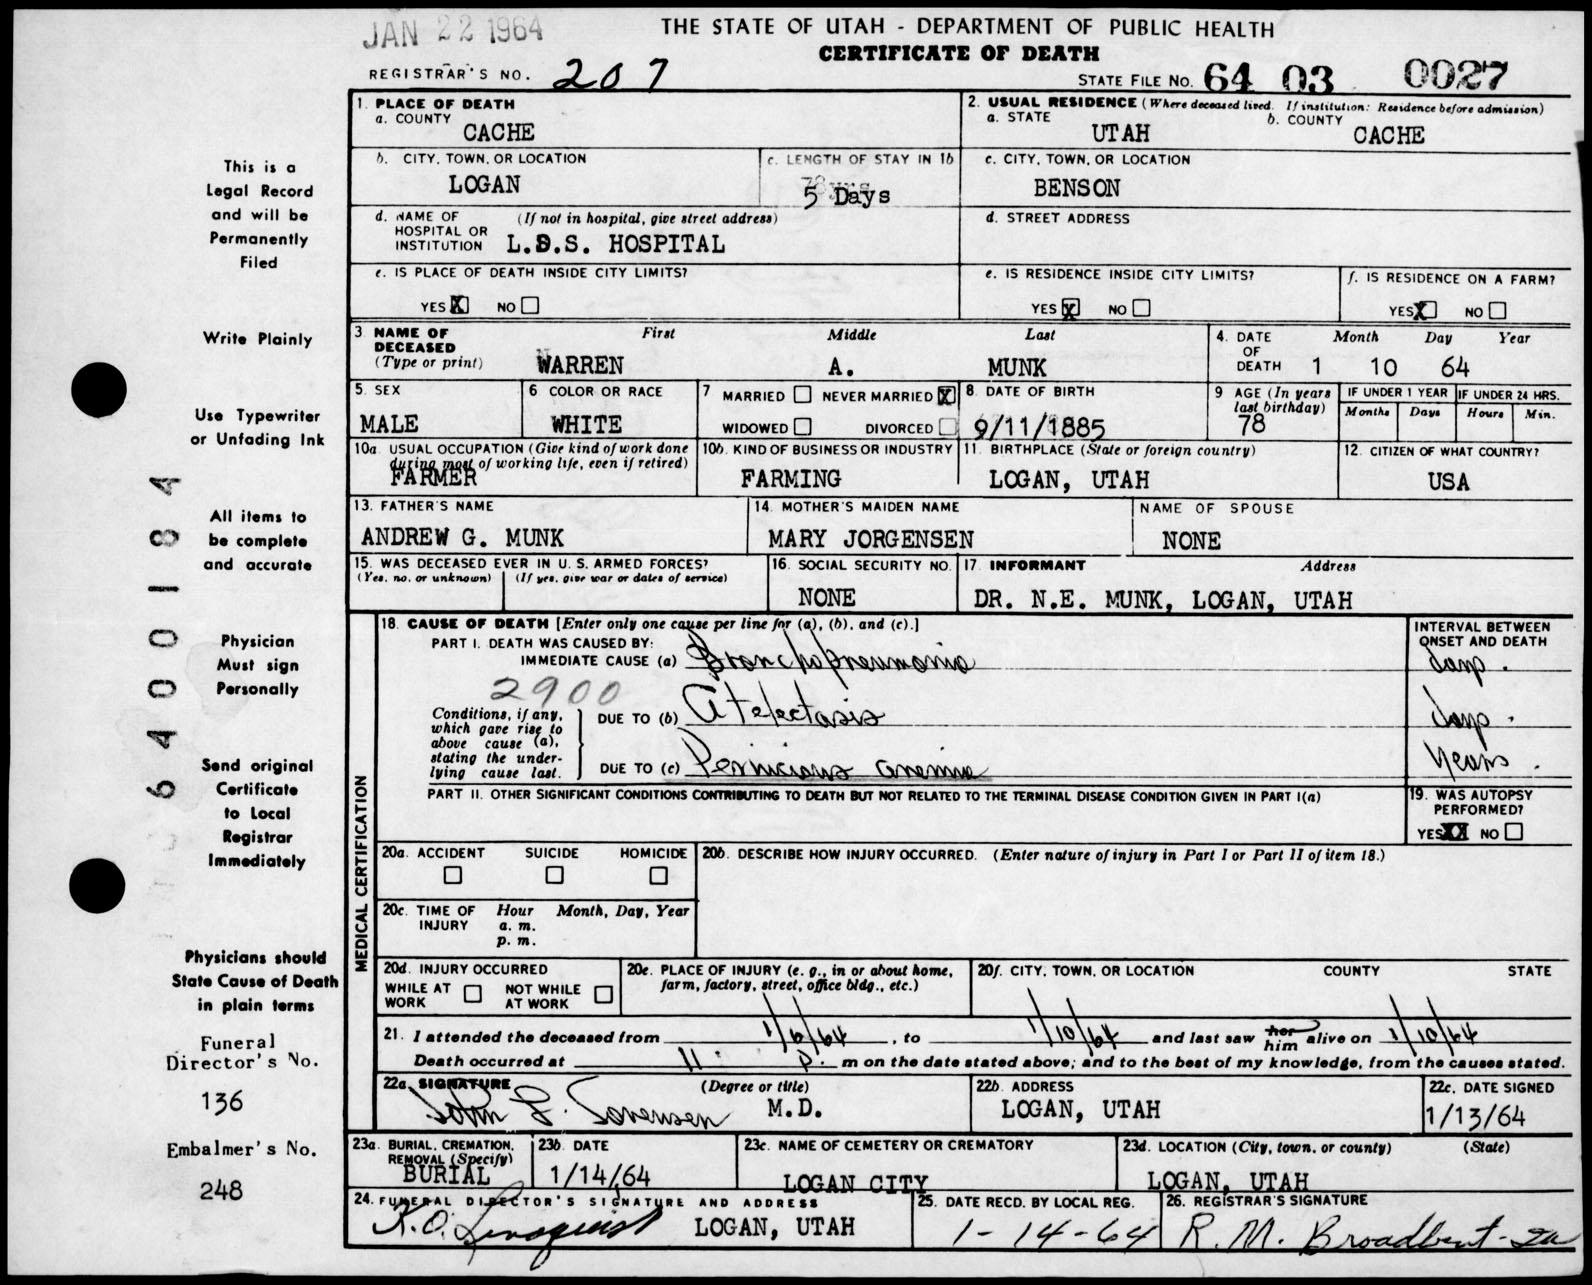 JAN 22 1964
THE STATE OF UTAH - DEPARTMENT OF PUBLIC HEALTH
CERTIFICATE OF DEATH
REGISTRAR'S NO. 207
STATE FILE NO. 64 03 0027
This is a
Legal Record
and will be
Permanently
Filed
Write Plainly
Use Typewriter
or Unfading Ink
All items to
be complete
and accurate
Physician
Must sign
Personally
Send original
Certificate
to Local
Registrar
Immediately
Physicians should
State Cause of Death
in plain terms
Funeral
Director's No.
136
Embalmer's No.
248
64 00184
1. PLACE OF DEATH
a. COUNTY
CACHE
2. USUAL RESIDENCE (Where deceased lived. If institution: Residence before admission)
a. STATE
UTAH
b. COUNTY
CACHE
b. CITY, TOWN, OR LOCATION
LOGAN
c. LENGTH OF STAY IN 1b
5 Days
c. CITY, TOWN, OR LOCATION
BENSON
d. NAME OF HOSPITAL OR INSTITUTION (If not in hospital, give street address)
L.D.S. HOSPITAL
d. STREET ADDRESS
e. IS PLACE OF DEATH INSIDE CITY LIMITS?
YES X NO
e. IS RESIDENCE INSIDE CITY LIMITS?
YES X NO
f. IS RESIDENCE ON A FARM?
YES X NO
3. NAME OF DECEASED (Type or print)
First Middle Last
WARREN A. MUNK
4. DATE OF DEATH
Month Day Year
1 10 64
5. SEX
MALE
6 COLOR OR RACE
WHITE
7 MARRIED NEVER MARRIED X
WIDOWED DIVORCED
8. DATE OF BIRTH
9/11/1885
9 AGE (In years last birthday)
78
IF UNDER 1 YEAR
Months Days
IF UNDER 24 HRS.
Hours Min.
10a. USUAL OCCUPATION (Give kind of work done during most of working life, even if retired)
FARMER
10b. KIND OF BUSINESS OR INDUSTRY
FARMING
11. BIRTHPLACE (State or foreign country)
LOGAN, UTAH
12. CITIZEN OF WHAT COUNTRY?
USA
13. FATHER'S NAME
ANDREW G. MUNK
14. MOTHER'S MAIDEN NAME
MARY JORGENSEN
NAME OF SPOUSE
NONE
15. WAS DECEASED EVER IN U. S. ARMED FORCES?
(Yes, no, or unknown) (If yes, give war or dates of service)
16. SOCIAL SECURITY NO.
NONE
17. INFORMANT Address
DR. N.E. MUNK, LOGAN, UTAH
MEDICAL CERTIFICATION
18. CAUSE OF DEATH [Enter only one cause per line for (a), (b), and (c).]
INTERVAL BETWEEN ONSET AND DEATH
PART I. DEATH WAS CAUSED BY:
IMMEDIATE CAUSE (a) Bronchopneumonia days.
2900
Conditions, if any, which gave rise to above cause (a), stating the underlying cause last.
DUE TO (b) Atelectasis days.
DUE TO (c) Pernicious anemia years.
PART II. OTHER SIGNIFICANT CONDITIONS CONTRIBUTING TO DEATH BUT NOT RELATED TO THE TERMINAL DISEASE CONDITION GIVEN IN PART I(a)
19. WAS AUTOPSY PERFORMED?
YES XX NO
20a. ACCIDENT SUICIDE HOMICIDE
20b. DESCRIBE HOW INJURY OCCURRED. (Enter nature of injury in Part I or Part II of item 18.)
20c. TIME OF INJURY
Hour Month, Day, Year
a. m.
p. m.
20d. INJURY OCCURRED
WHILE AT WORK NOT WHILE AT WORK
20e. PLACE OF INJURY (e. g., in or about home, farm, factory, street, office bldg., etc.)
20f. CITY, TOWN, OR LOCATION COUNTY STATE
21. I attended the deceased from 1/6/64, to 1/10/64 and last saw her him alive on 1/10/64
Death occurred at 11: P. m on the date stated above; and to the best of my knowledge, from the causes stated.
22a. SIGNATURE (Degree or title)
John E. Sorensen M.D.
22b. ADDRESS
LOGAN, UTAH
22c. DATE SIGNED
1/13/64
23a. BURIAL, CREMATION, REMOVAL (Specify)
BURIAL
23b. DATE
1/14/64
23c. NAME OF CEMETERY OR CREMATORY
LOGAN CITY
23d. LOCATION (City, town, or county) (State)
LOGAN, UTAH
24. FUNERAL DIRECTOR'S SIGNATURE AND ADDRESS
K.O. Lindquist LOGAN, UTAH
25. DATE RECD. BY LOCAL REG.
1-14-64
26. REGISTRAR'S SIGNATURE
R. M. Broadbent